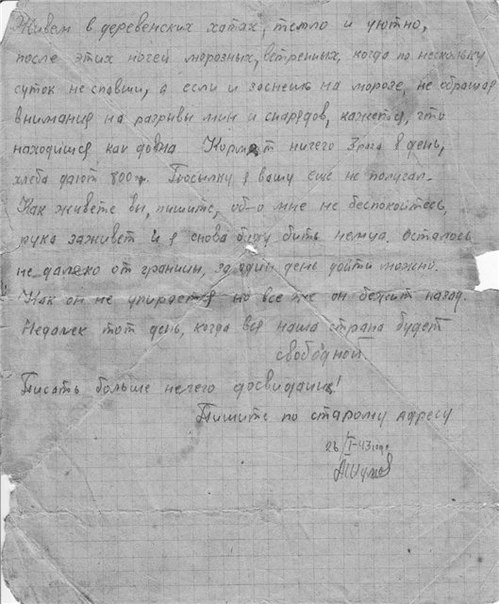 Живем в деревенских хатах, тепло и уютно,
после этих ночей морозных, ветренных, когда по нескольку
суток не спавши, а если и заснешь на морозе, не обращая
внимания на разрывы мин и снарядов, кажется, что
находишся как дома Кормят ничего 3 раза в день,
хлеба дают 800 гр. Посылку я вашу еще не получал.
Как живете вы, пишите, об-о мне не беспокойтесь,
рука заживет и я снова буду бить немца. Осталось
не далеко от границы, за один день дойти можно.
Как он не упирается но все же он бежит назад.
Недалек тот день, когда вся наша страна будет
свободной.
Писать больше нечего досвидания!
Пишите по старому адресу
26/I-43 год.